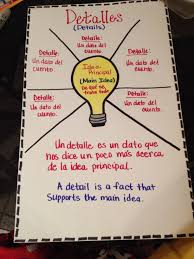 Detalles
(Details)
Detalle:
Un dato del
cuento.
Detalle:
Un dato del
cuento.
Idea
Principal
(Main Idea)
De qué se
trata todo
Detalle:
Un dato del
cuento.
Detalle:
Un dato del
cuento.
Un detalle es un dato que
nos dice un poco más acerca
de la idea principal.
A detail is a fact that
supports the main idea.